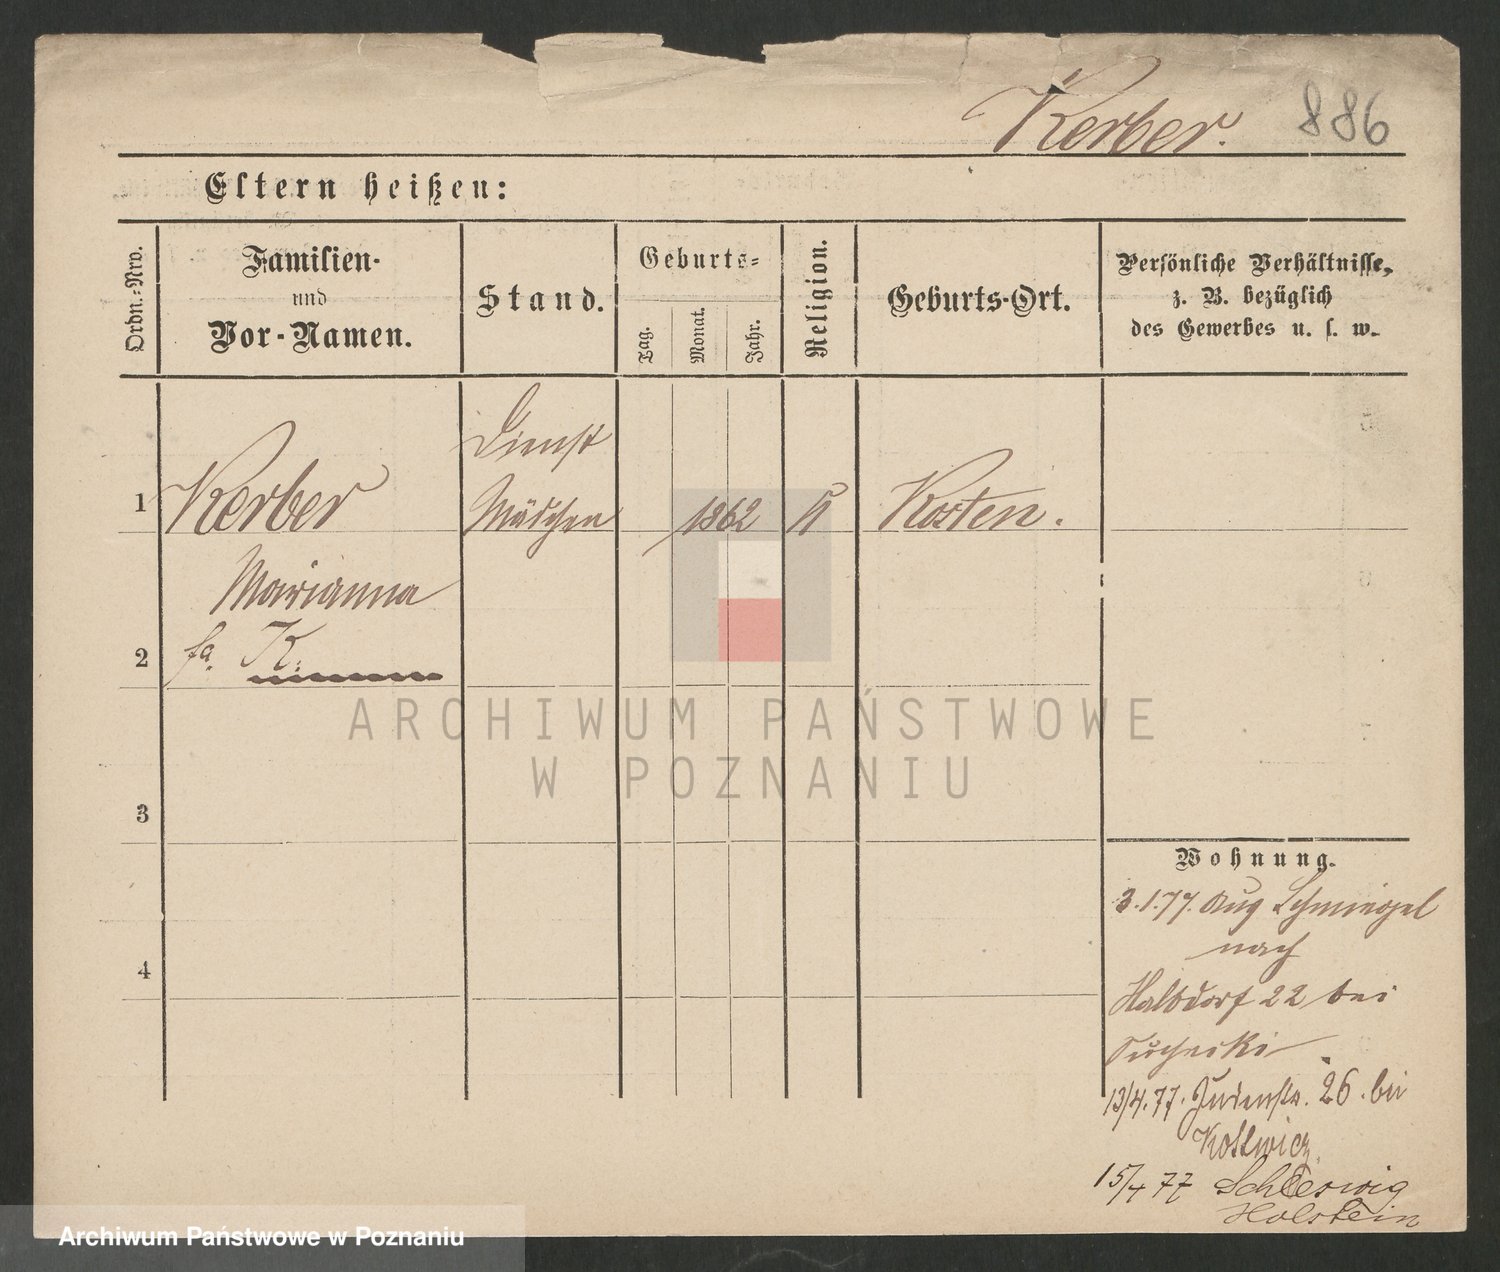 Kerber.
886
Eltern heißen:
Ordn.-Nro.
Familien-
und
Vor-Namen.
Stand.
Geburts-
Tag.
Monat.
Jahr.
Religion.
Geburts-Ort.
Persönliche Verhältnisse,
z. B. bezüglich
des Gewerbes u. s. w.
1
Kerber
Dienst
Mädchen
1862
Kosten.
Marianna
2
fa. K.
3
4
Wohnung.
3.1.77. aus Schmiegel
nach
Halbdorf 22 bei
Suchecki
13/4.77. Judenstr. 26. bei
Kottwicz.
15/4 77 Schleswig
Holstein
ARCHIWUM PAŃSTWOWE
W POZNANIU
Archiwum Państwowe w Poznaniu